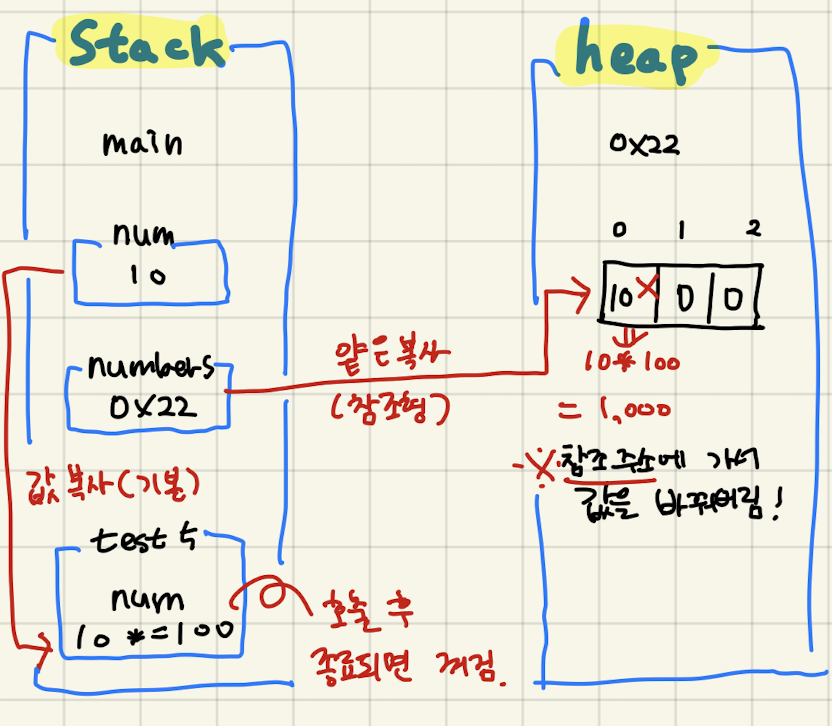 Stack
main
num
10
numbers
0x22
값 복사(기본)
test 5
num
10 *=100
호출 후
종료되면 꺼짐.
얕은복사
(참조형)
heap
0x22
0 1 2
10 0 0
10*100
= 1,000
※ 참조주소에 가서
값을 바꿔버림!